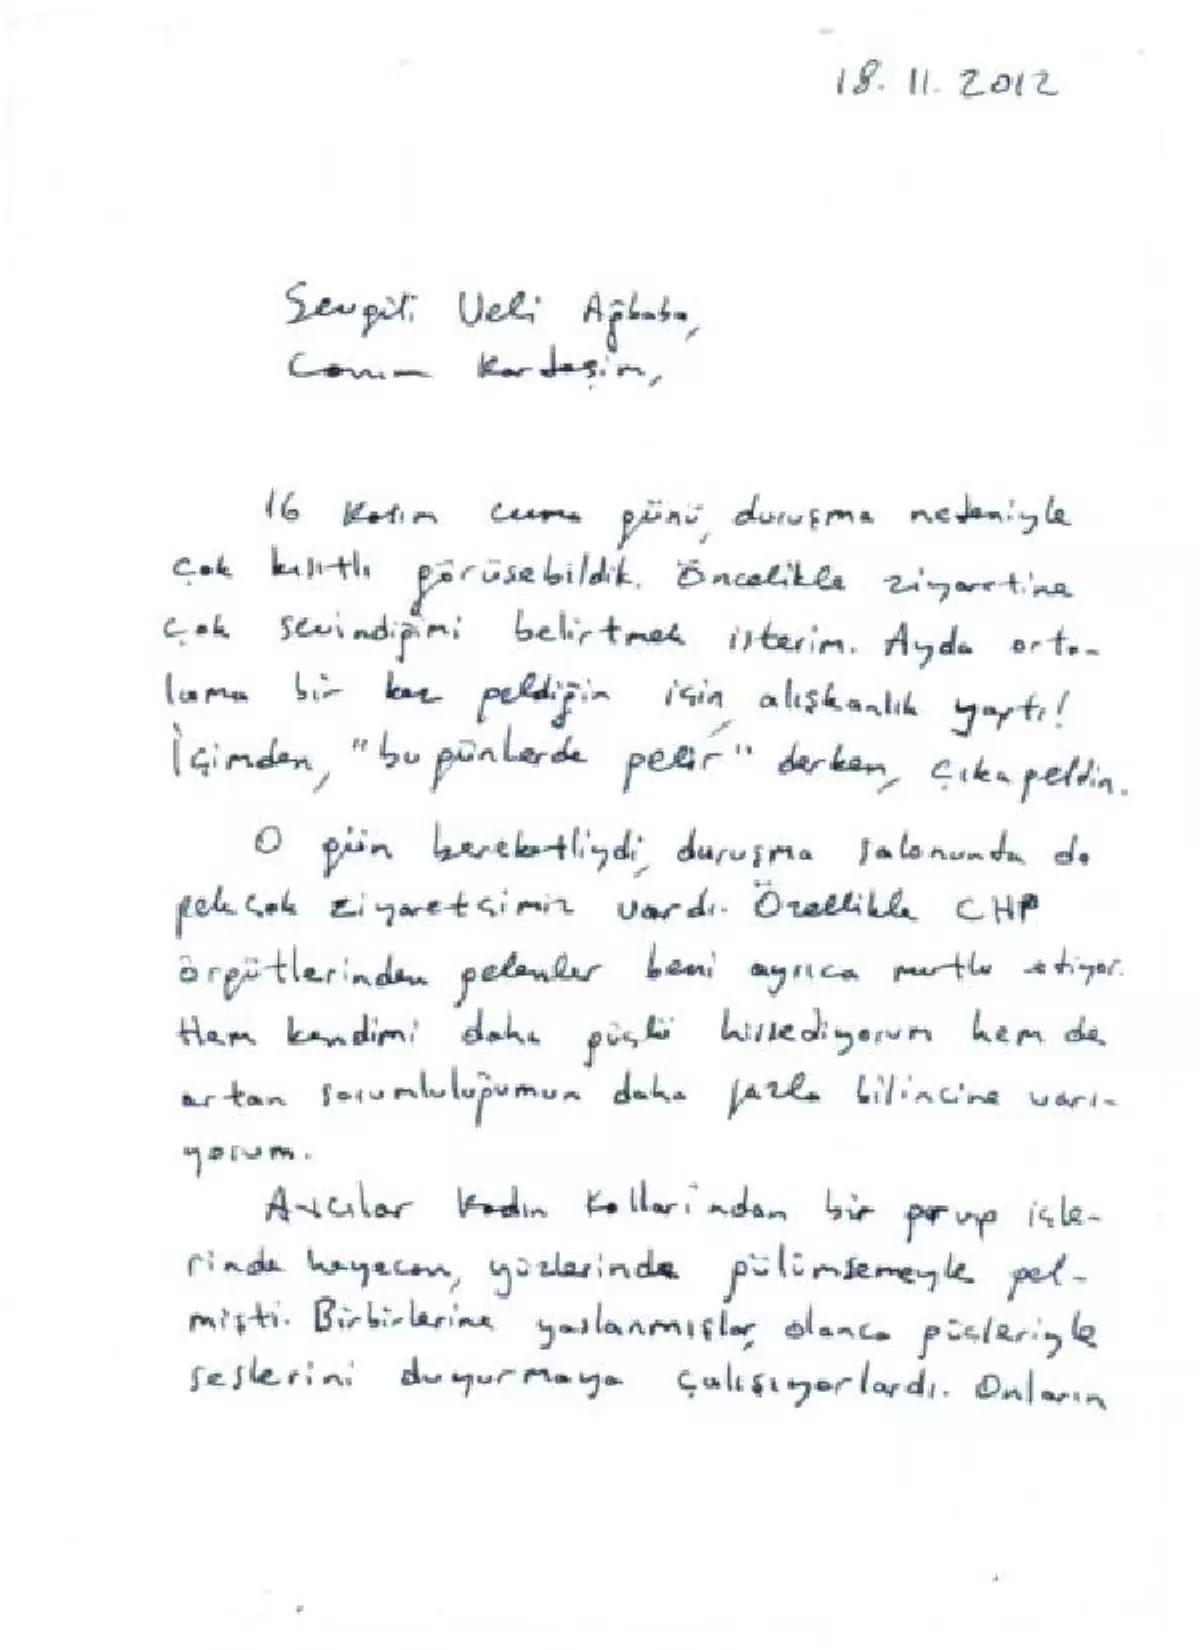 18.11.2012
Sevgili Veli Ağbaba,
Canım Kardeşim,
16 Kasım cuma günü, duruşma nedeniyle
çok kısıtlı görüşebildik. Öncelikle ziyaretine
çok sevindiğimi belirtmek isterim. Ayda orta-
lama bir kez geldiğin için, alışkanlık yaptı!
İçimden, "bu günlerde gelir" derken, çıka geldin.
O gün bereketliydi, duruşma salonunda da
pek çok ziyaretçimiz vardı. Özellikle CHP
örgütlerinden gelenler beni ayrıca mutlu ediyor.
Hem kendimi daha güçlü hissediyorum hem de
artan sorumluluğumun daha fazla bilincine varı-
yorum.
Avcılar Kadın Kolları'ndan bir grup içle-
rinde heyecan, yüzlerinde gülümsemeyle gel-
mişti. Birbirlerine yaslanmışlar, olanca güçleriyle
seslerini duyurmaya çalışıyorlardı. Onların